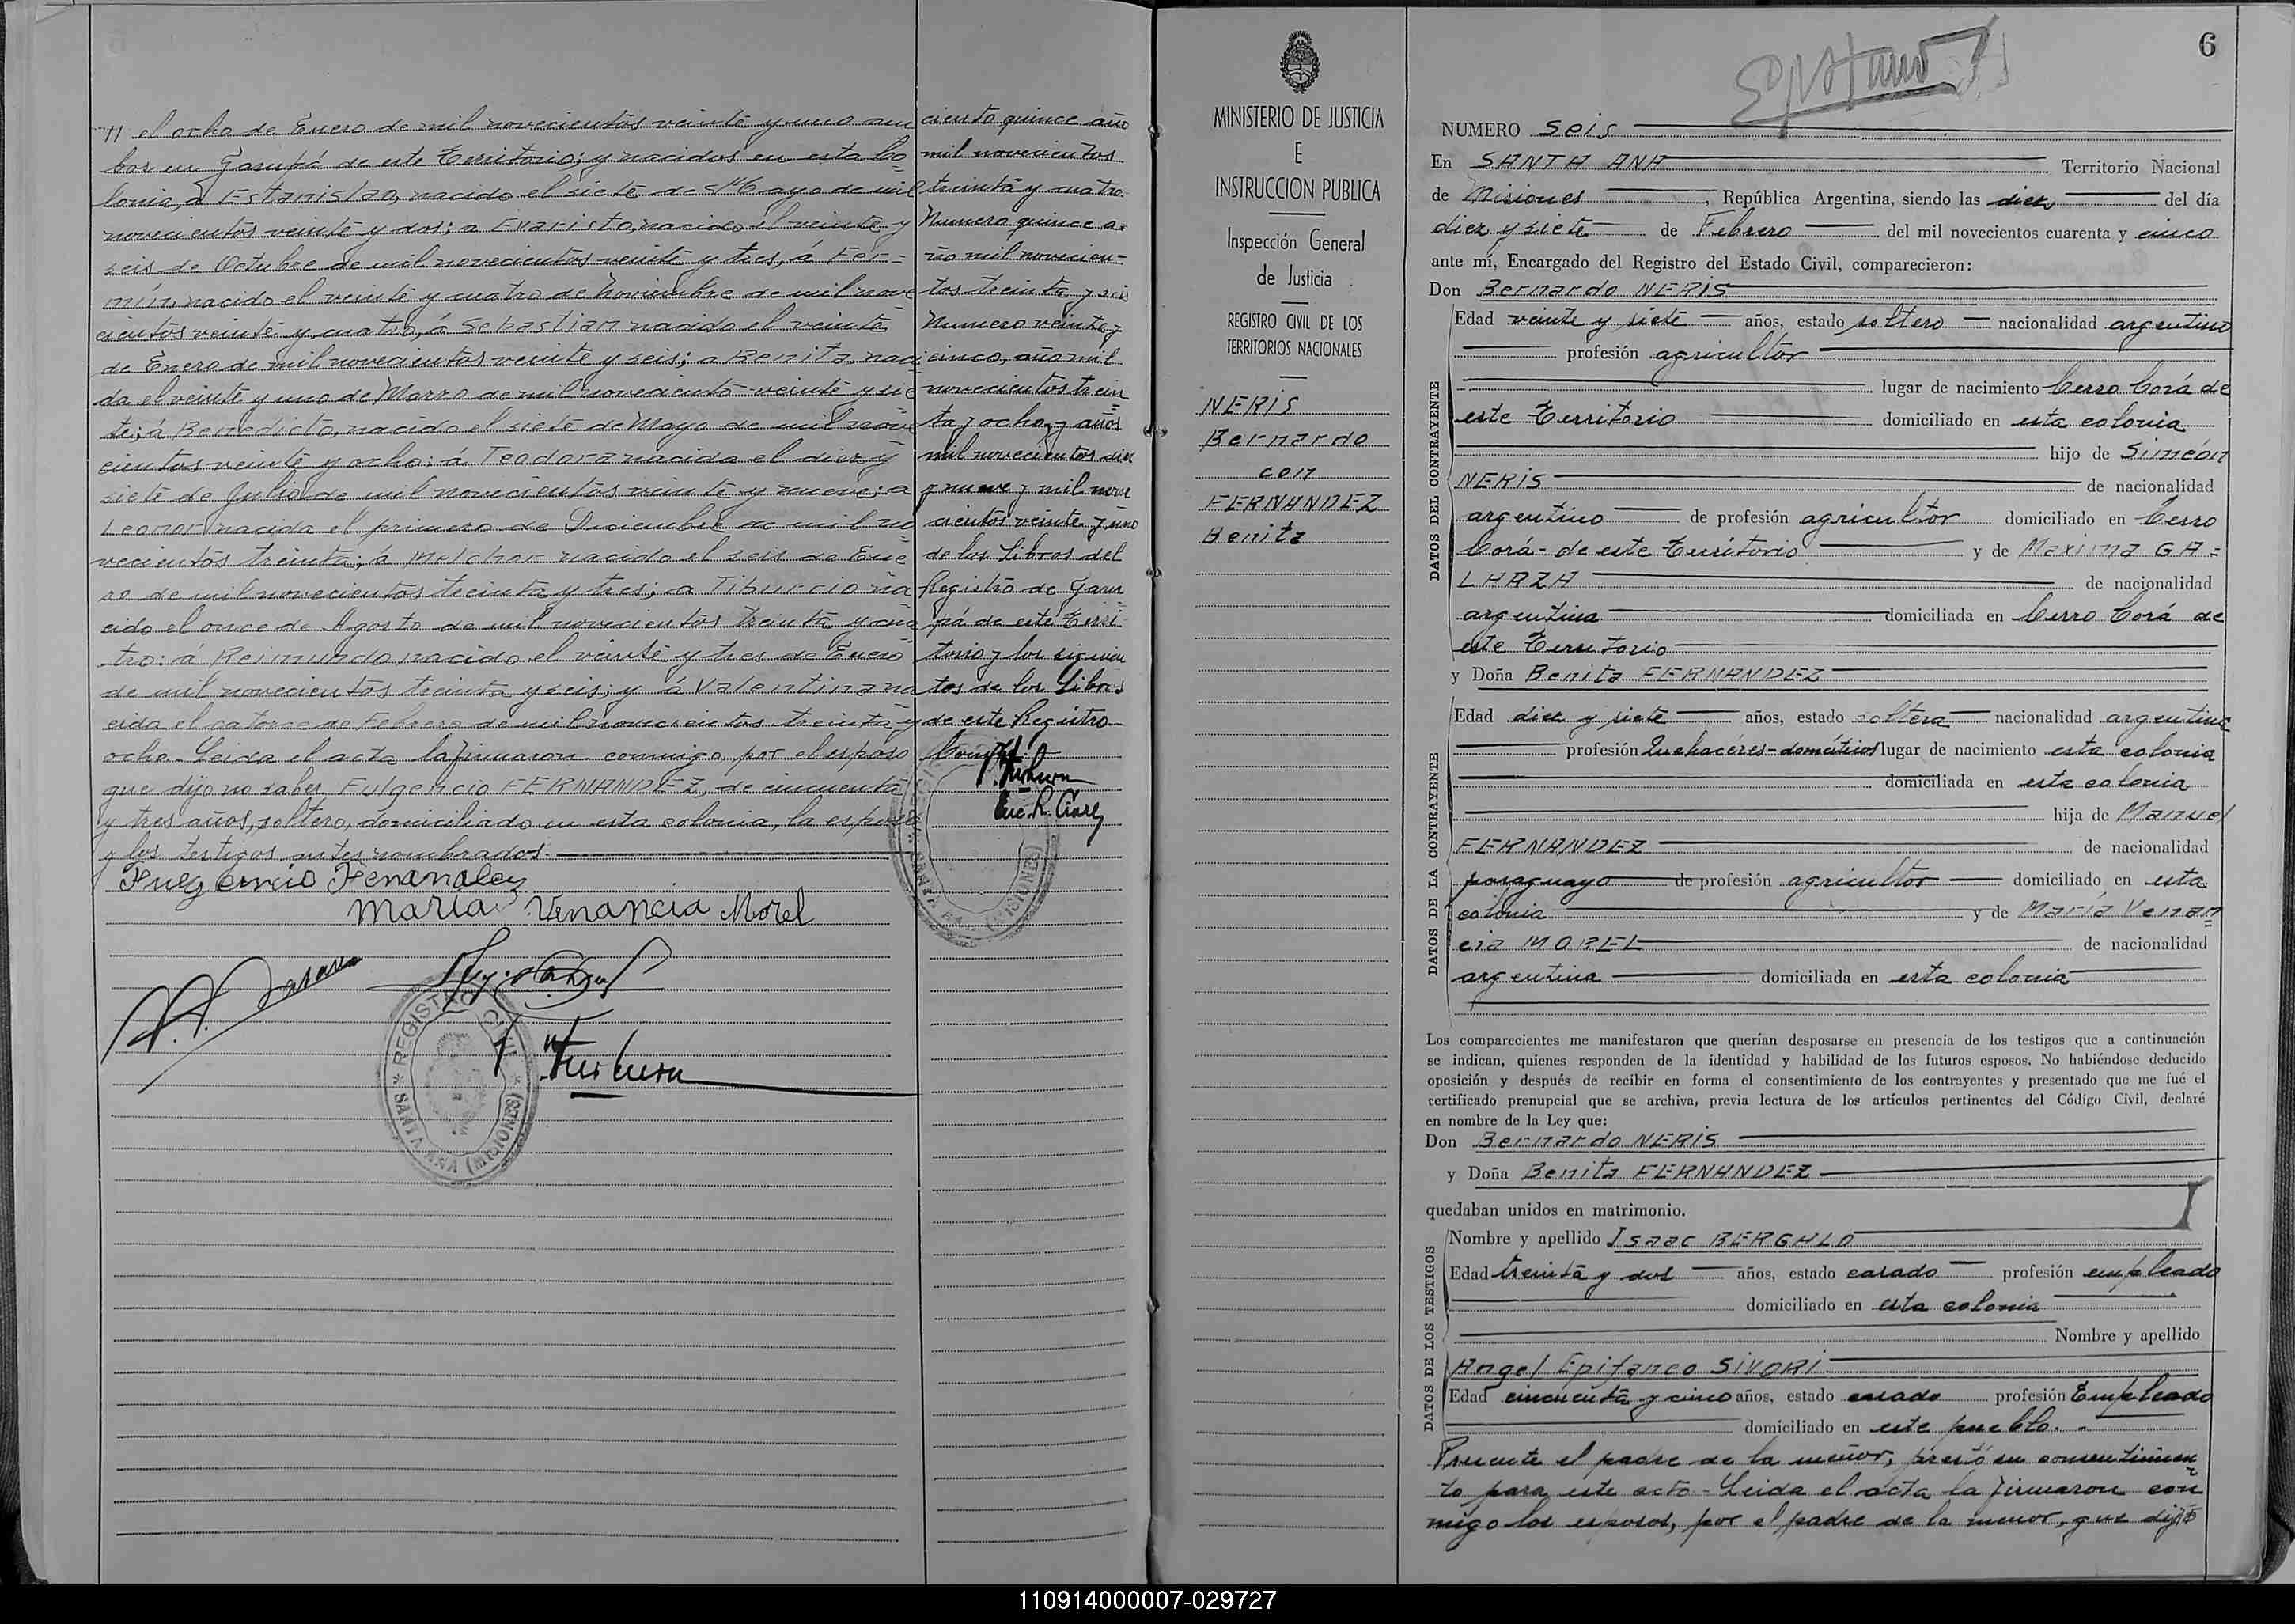 " el ocho de Enero de mil novecientos veinte y uno am
bos en Garupá de este Territorio; y nacidos en esta Co
lonia, á Estanislao, nacido el siete de Mayo de mil
novecientos veinte y dos; a Evaristo, nacido el veinte y
seis de Octubre de mil novecientos veinte y tres, á Fer=
mín, nacido el veinte y cuatro de Noviembre de mil nove
cientos veinte y cuatro, á Sebastian nacido el veinte
de Enero de mil novecientos veinte y seis; a Benita, naci
da el veinte y uno de Marzo de mil novecientos veinte y sie
te; á Benedicto, nacido el siete de Mayo de mil nove
cientos veinte y ocho; á Teodora nacida el diez y
siete de Julio de mil novecientos veinte y nueve; a
Leonor nacida el primero de Diciembre de mil no
vecientos treinta; a Melchor nacido el seis de Ene
ro de mil novecientos treinta y tres; a Tiburcio na
cido el once de Agosto de mil novecientos treinta y cua
tro: á Reimundo nacido el veinte y tres de Enero
de mil novecientos treinta y seis; y á Valentina na
cida el catorce de Febrero de mil novecientos treinta y
ocho. Leida el acta la firmaron conmigo por el esposo
que dijo no saber Fulgencio FERNANDEZ, de cincuenta
y tres años, soltero, domiciliado en esta colonia, la esposa
y los testigos antes nombrados.
Fulgencio Fenandez
Maria Venancia Morel
REGISTRO CIVIL
SANTA ANA (MISIONES)
ciento quince año
mil novecientos
treinta y cuatro.
Numero quince a=
ño mil novecien=
tos treinta y seis
Numero veinte y
cinco, año mil
novecientos trein
ta y ocho, y años
mil novecientos diez
y nueve y mil nove
cientos veinte y uno
de los Libros del
Registro de Garu
pá de este Terri
torio y los siguien
tes de los Libros
de este Registro
Enc. R. Civil
SANTA ANA (MISIONES)
MINISTERIO DE JUSTICIA
E
INSTRUCCION PUBLICA
Inspección General
de Justicia
REGISTRO CIVIL DE LOS
TERRITORIOS NACIONALES
NERIS
Bernardo
con
FERNANDEZ
Benita
6
NUMERO Seis
En SANTA ANA Territorio Nacional
de Misiones, República Argentina, siendo las diez del día
diez y siete de Febrero del mil novecientos cuarenta y cinco
ante mí, Encargado del Registro del Estado Civil, comparecieron:
Don Bernardo NERIS
DATOS DEL CONTRAYENTE
Edad veinte y siete años, estado soltero nacionalidad argentino
profesión agricultor
lugar de nacimiento Cerro Corá de
este Territorio domiciliado en esta colonia
hijo de Simeón
NERIS de nacionalidad
argentino de profesión agricultor domiciliado en Cerro
Corá - de este Territorio y de Maxima GA=
LARZA de nacionalidad
argentina domiciliada en Cerro Corá de
este Territorio
y Doña Benita FERNANDEZ
DATOS DE LA CONTRAYENTE
Edad diez y siete años, estado soltera nacionalidad argentina
profesión Quehaceres-domésticos lugar de nacimiento esta colonia
domiciliada en esta colonia
hija de Manuel
FERNANDEZ de nacionalidad
paraguayo de profesión agricultor domiciliado en esta
colonia y de María Venan=
cia MOREL de nacionalidad
argentina domiciliada en esta colonia
Los comparecientes me manifestaron que querían desposarse en presencia de los testigos que a continuación
se indican, quienes responden de la identidad y habilidad de los futuros esposos. No habiéndose deducido
oposición y después de recibir en forma el consentimiento de los contrayentes y presentado que me fué el
certificado prenupcial que se archiva, previa lectura de los artículos pertinentes del Código Civil, declaré
en nombre de la Ley que:
Don Bernardo NERIS
y Doña Benita FERNANDEZ
quedaban unidos en matrimonio.
DATOS DE LOS TESTIGOS
Nombre y apellido Isaac BERGALO
Edad treinta y dos años, estado casado profesión empleado
domiciliado en esta colonia
Nombre y apellido
Angel Epifaneo SIVORI
Edad cincuenta y cinco años, estado casado profesión Empleado
domiciliado en este pueblo.
Presente el padre de la menor, prestó su consentimien
to para este acto - Leida el acta la firmaron con
migo los esposos, por el padre de la menor, que dijo
110914000007-029727